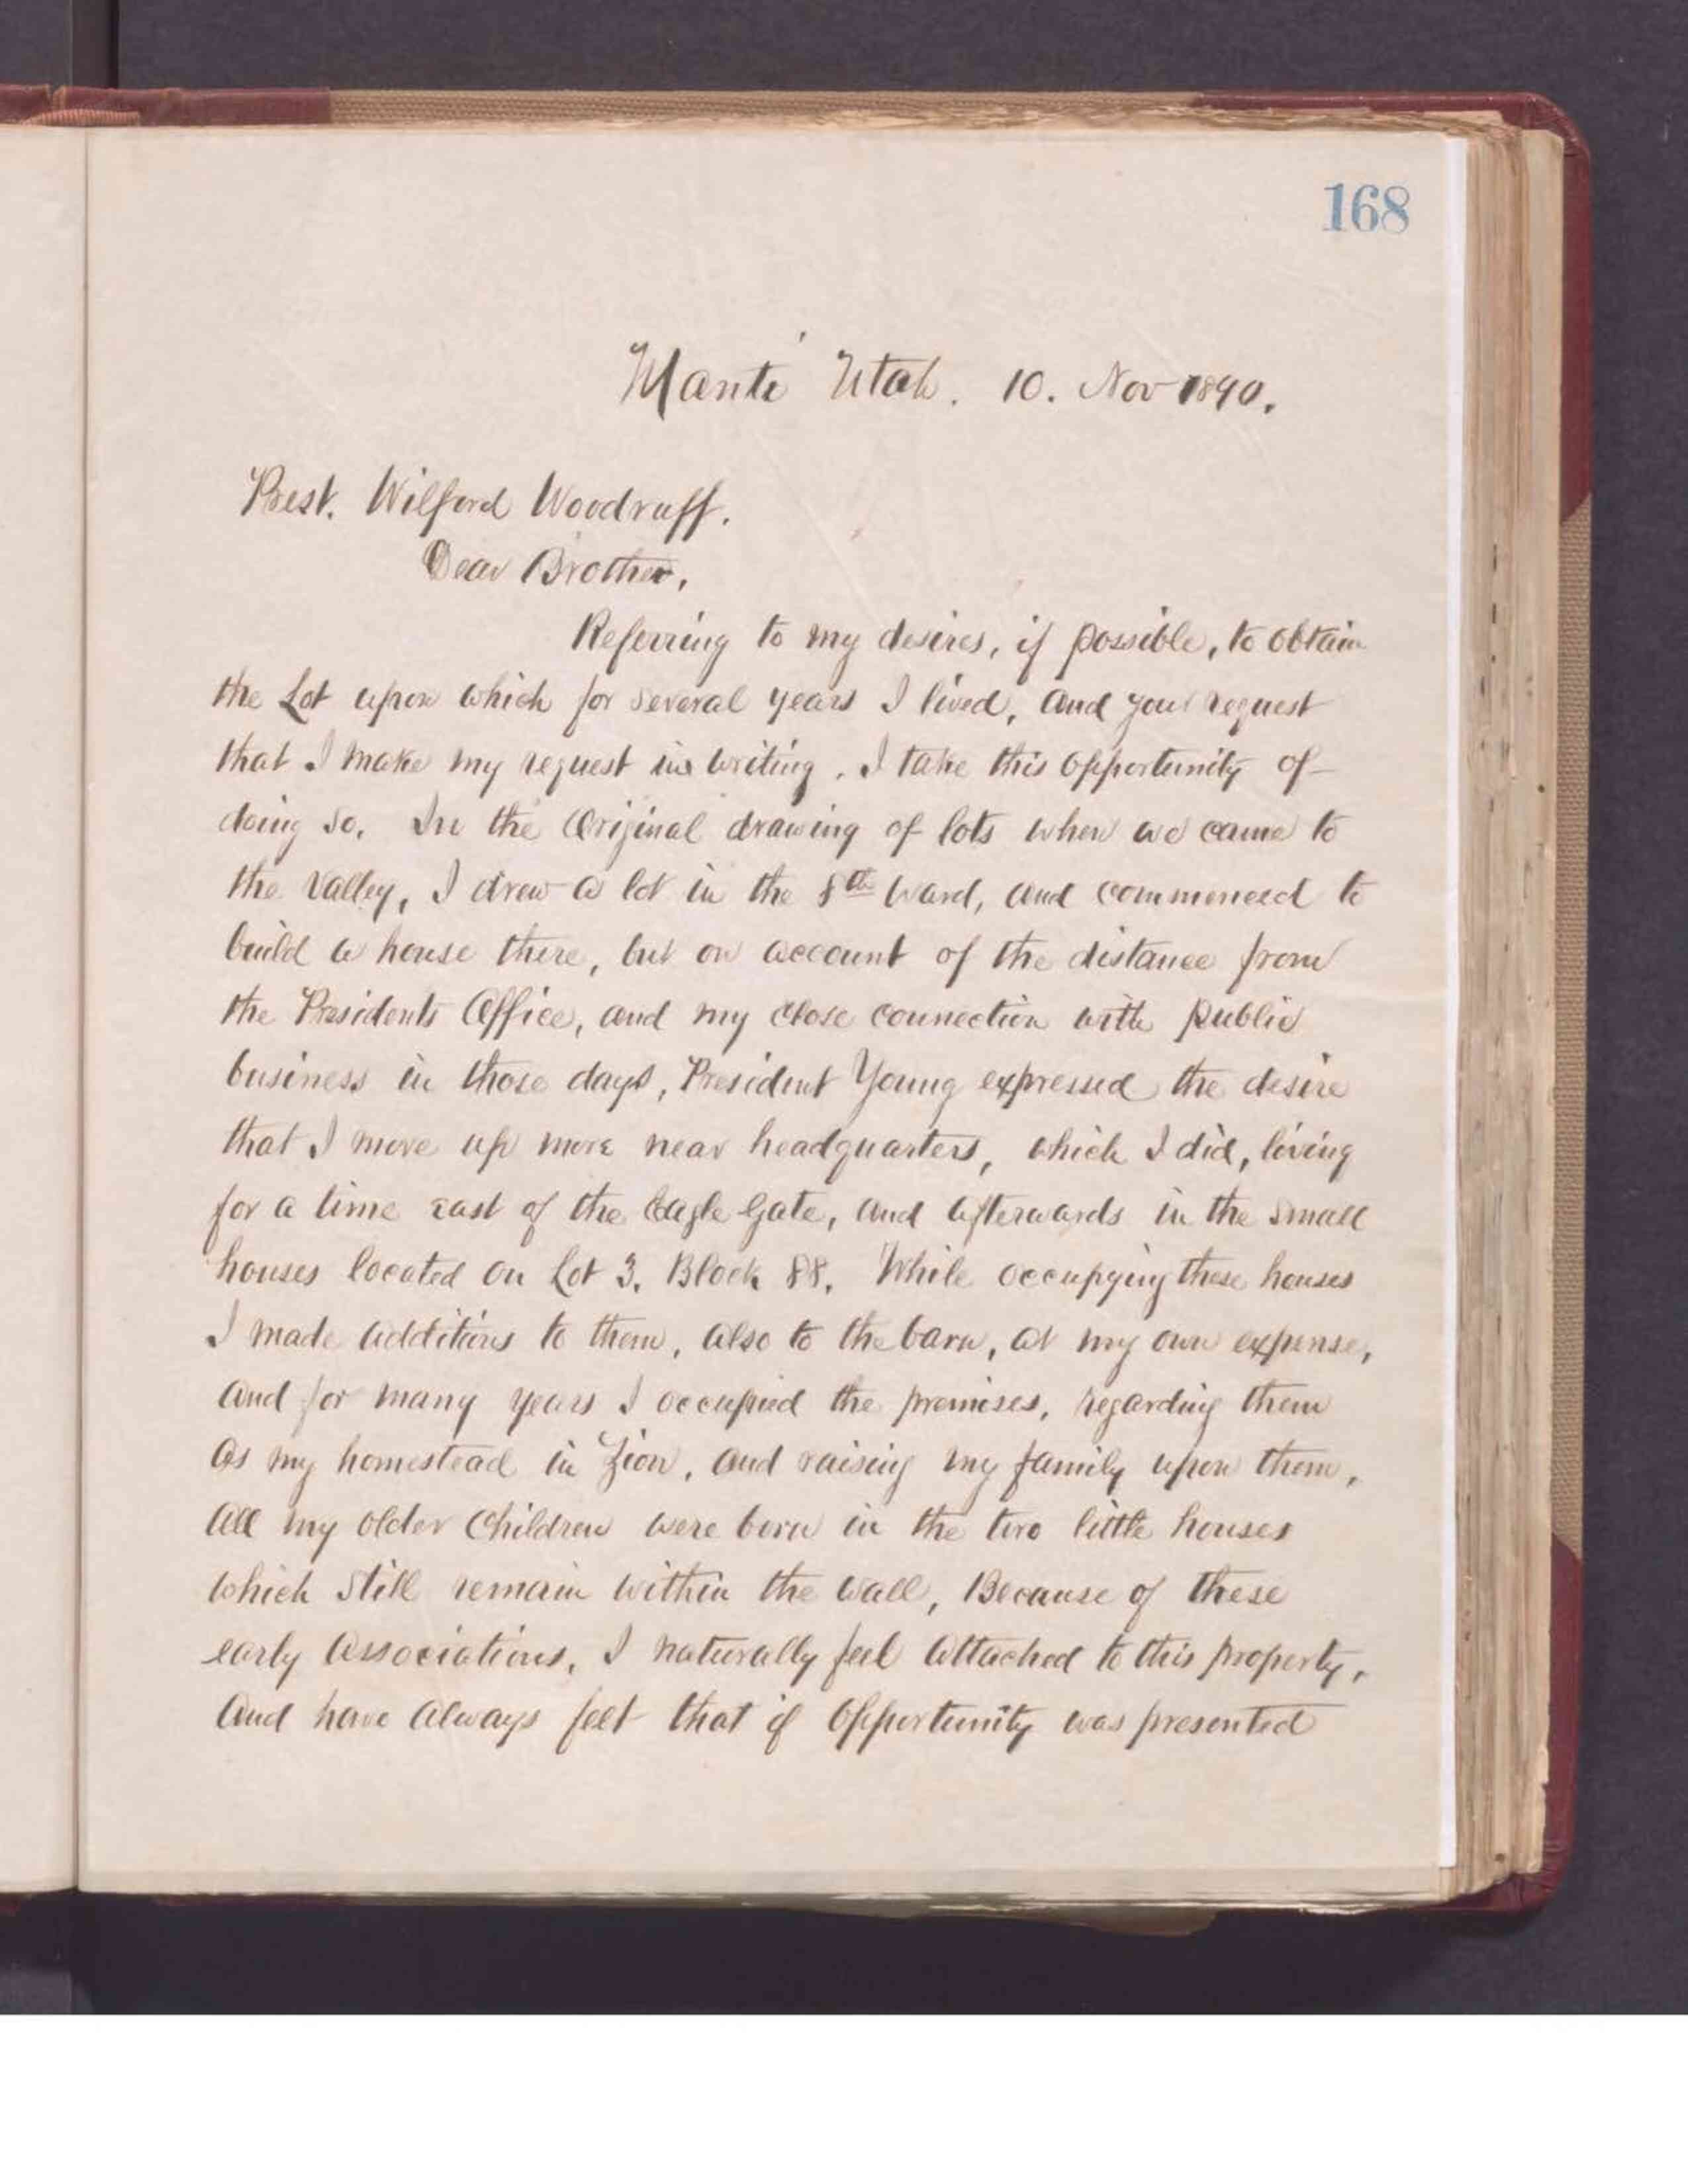 168
Manti Utah. 10. Nov 1890.
Prest. Wilford Woodruff.
Dear Brother,
Referring to my desires, if possible, to obtain
the Lot upon which for several years I lived, and your request
that I make my request in writing. I take this opportunity of
doing so. In the Original drawing of lots when we came to
the Valley, I drew a lot in the 8th Ward, and commenced to
build a house there, but on account of the distance from
the Presidents Office, and my close connection with public
business in those days, President Young expressed the desire
that I move up more near headquarters, which I did, living
for a time east of the Eagle Gate, and afterwards in the small
houses located on Lot 3. Block 88. While occupying these houses
I made additions to them, also to the barn, at my own expense,
and for many years I occupied the premises, regarding them
as my homestead in Zion, and raising my family upon them,
all my older Children were born in the two little houses
which still remain within the wall, Because of these
early associations, I naturally feel attached to this property,
and have always felt that if opportunity was presented